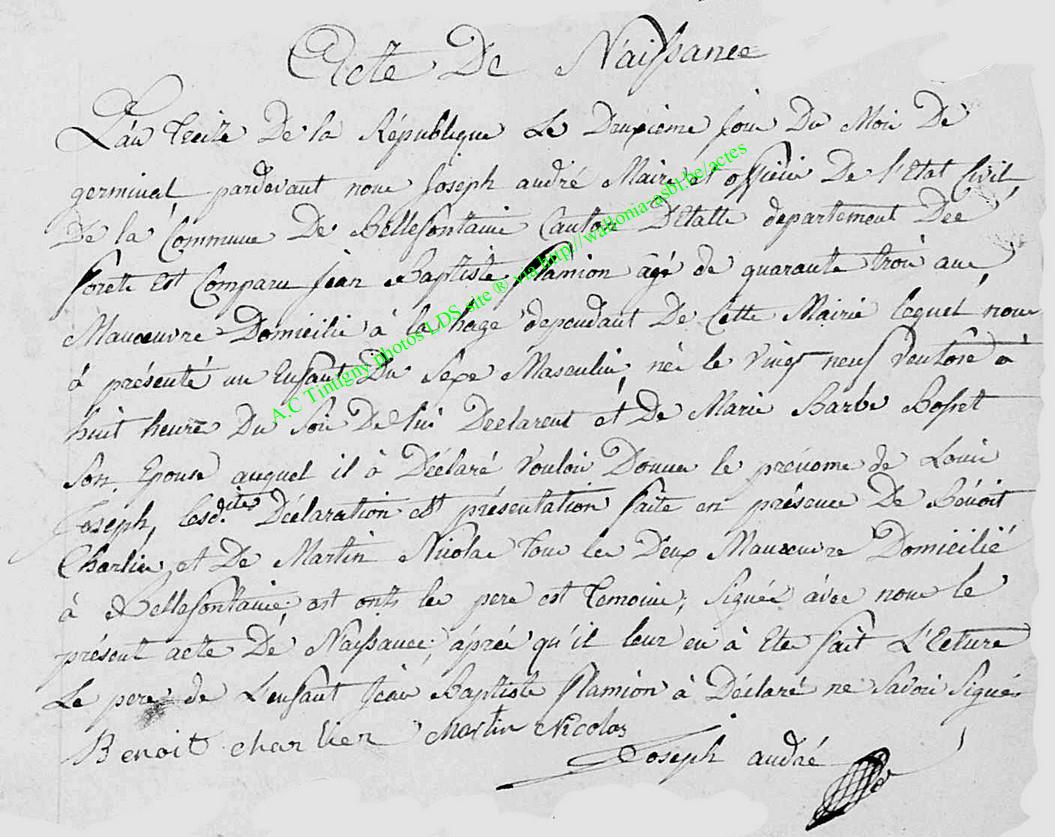 Acte De Naissance
L'an treize De la République Le Deuxieme jour Du Moi De
germinal, pardevant nous Joseph andré Maire et officier De l'Etat Civil
De la Commune De Bellefontaine Canton D'Etalle departement Des
forets Est Comparu jean Baptiste flamion agé de quarante troi ans
Manoeuvre Domicilié à la hage dependant De Cette Mairie lequel nous
à présenté un Enfant Du Sexe Masculin né le vingt neuf ventose à
huit heure Du Soir De lui Declarent et De Marie Barbe Bosset
Son Epouse auquel il à Déclaré vouloir Donner le prénome de Louis
Joseph, lesdites Déclaration est présentation faite en présence De Bénoit
Charlier et De Martin Nicolas tous les Deux Manoeuvre Domicilié
à Bellefontaine est onts les pere est temoins, Signée avec nous le
présent acte De Naissance; après qu'il leur en à Eté fait L'Ecture
Le pere de L'enfant Jean Baptiste flamion à Déclaré ne Savoir Signés
Benoit charlier Martin Nicolas
Joseph andré
A.C Tintigny Photos LDS site ® via http://wallonia-asbl.be/actes